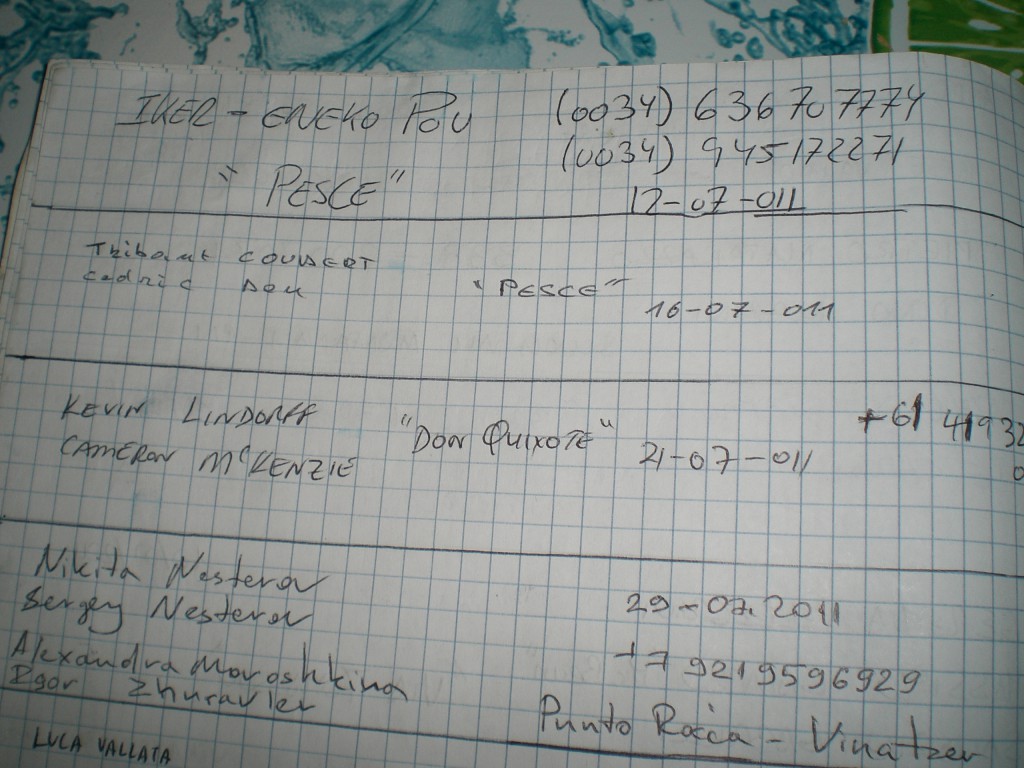 IKER - ENEKO POU (0034) 636707774
(0034) 945172271
"PESCE" 12-07-011
Thibaut
Cedric "PESCE"
16-07-011
KEVIN LINDORFF "DON QUIXOTE" +61 41932
CAMERON McKENZIE 21-07-011
Nikita Nesterov
Sergey Nesterov 29-07.2011
Alexandra Moroshkina +7 9219596929
Igor Zhuravlev Punta Rocca - Vinatzer
LUCA VALLATA